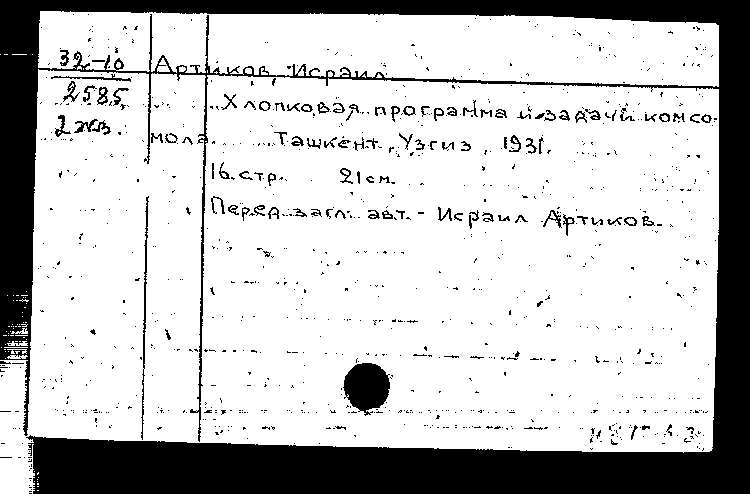 32-10
2585
2 экз.
Артиков, Исраил
Хлопковая программа и задачи комсо-
мола. Ташкент, Узгиз, 1931.
16 стр. 21 см.
Перед загл. авт. - Исраил Артиков.